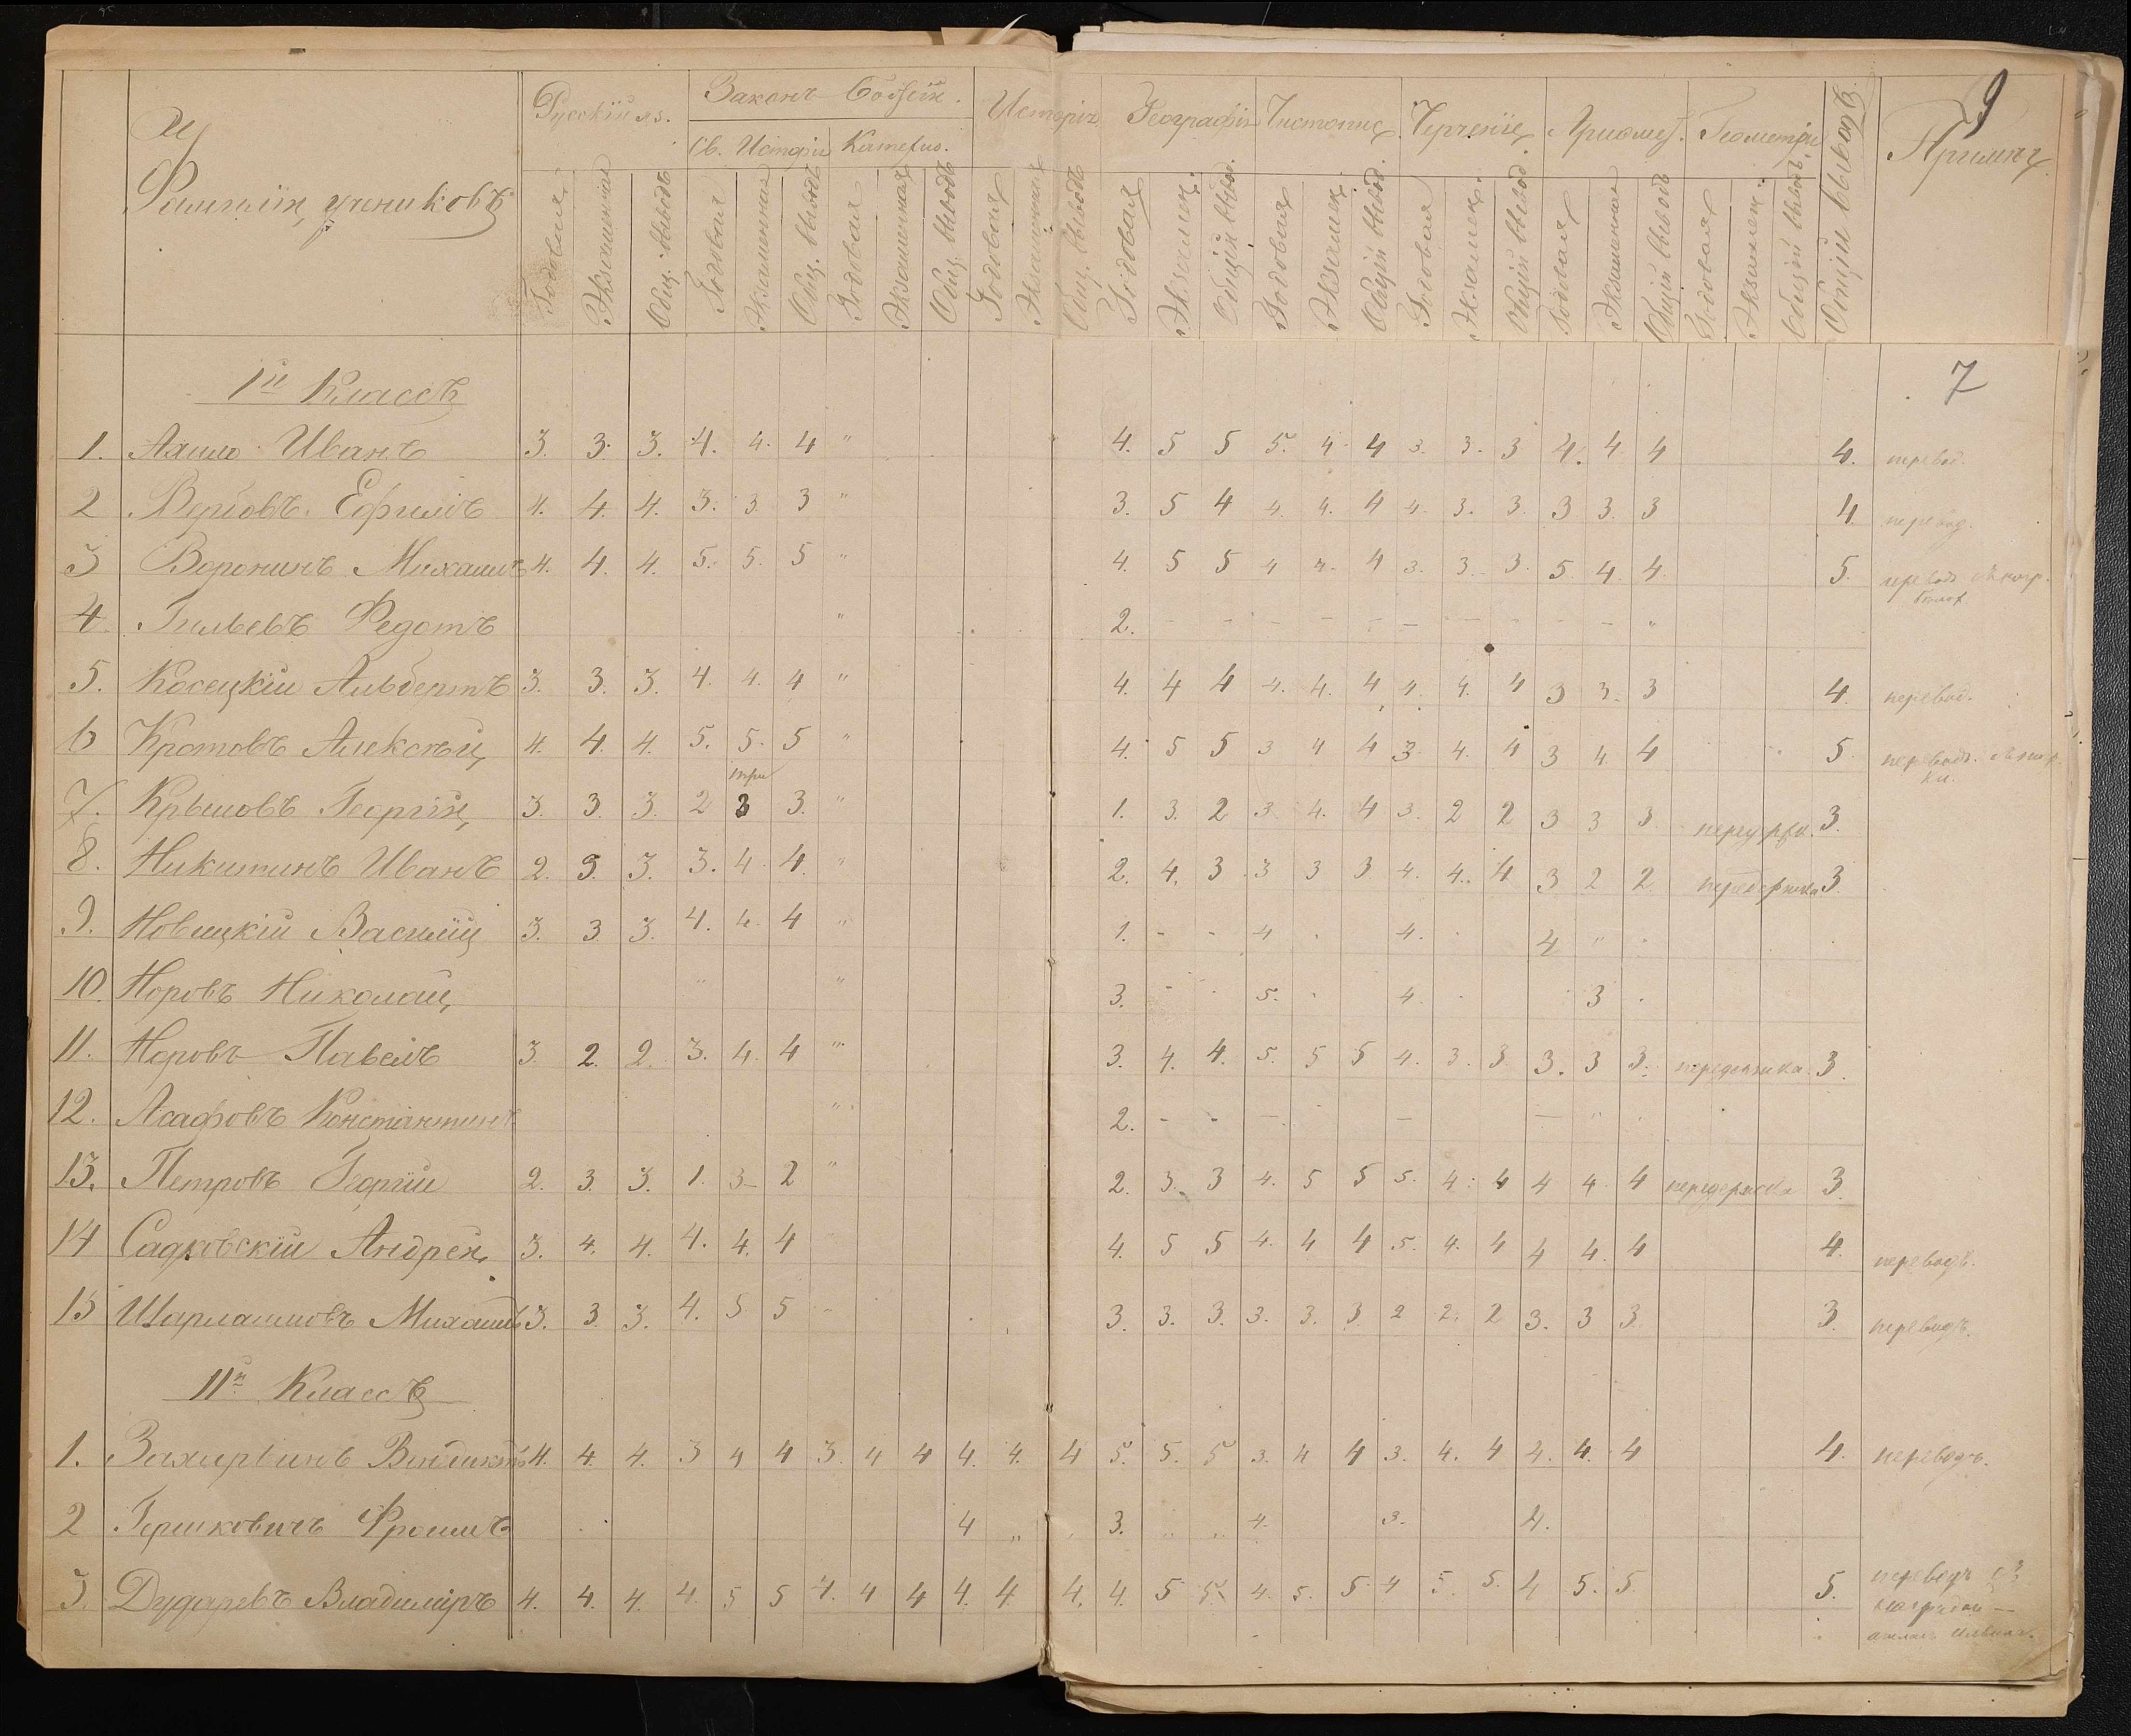 9
Фамилія учениковъ
Русскій яз.
Законъ Божій.
Св. Исторія
Катехиз.
Исторія
Географія
Чистопис.
Черченіе
Ариѳмет.
Геометрія
Общій выводъ.
Примѣч.
Годовая
Экзаменная
Общ. выводъ
Годовая
Экзаменная
Общ. выводъ
Годовая
Экзаменная
Общ. выводъ
Годовая
Экзаменная
Общ. выводъ
Годовая
Экзамен.
Общій вывод.
Годовая
Экзамен.
Общій вывод.
Годовая
Экзамен.
Общій вывод.
Годовая
Экзаменная
Общій выводъ
Годовая
Экзамен.
Общій выводъ
1й Классъ
7
1. Иванъ 3. 3. 3. 4. 4. 4 " 4. 5 5 5. 4. 4 3. 3. 3 4. 4. 4 4. перевод.
2 Ефимъ 4. 4. 4. 3. 3. 3 " 3. 5 4 4. 4. 4 4. 3. 3. 3 3. 3 4. перевод.
3 Воронинъ Михаилъ 4. 4. 4. 5. 5. 5 " 4. 5 5 4 4. 4 3. 3. 3. 5 4. 4. 5. переводъ
4. Федотъ " 2. - - - - - - - - - - "
5. Косецкій Альбертъ 3. 3. 3. 4. 4. 4 " 4. 4 4 4. 4. 4 4. 4. 4 3 3. 3 4. перевод.
6 Кротовъ Алексѣй 4. 4. 4. 5. 5. 5 " 4. 5 5 3 4 4 3. 4. 4 3 4 4 5. переводъ.
три
7. Крыловъ Георгій 3. 3. 3. 2 3 3. " 1. 3. 2 3. 4. 4 3. 2 2 3 3 3 3.
8. Никитинъ Иванъ 2. 3. 3. 3. 4. 4. " 2. 4. 3 3 3 3 4. 4. 4 3 2 2 3.
9. Новицкій Василій 3. 3 3. 4. 4. 4 " 1. - - 4 4. 4 "
10. Норовъ Николай " " 3. - 5. 4. 3
11. Норовъ Павелъ 3. 2. 2. 3. 4. 4 " 3. 4. 4. 5. 5 5 4. 3. 3 3. 3 3. передержка. 3.
12. Асафовъ Константинъ " 2. - - - - - - "
13. Петровъ Георгій 2. 3. 3. 1. 3 2 " 2. 3. 3 4. 5 5 5. 4. 4 4 4. 4 передержка 3.
14 Садковскій Андрей 3. 4. 4. 4. 4. 4 4. 5 5 4. 4 4 5. 4. 4 4 4. 4 4. переводъ.
15 Шарлашовъ Михаилъ 3. 3 3. 4. 5 5 3. 3. 3. 3. 3. 3. 2 2. 2 3. 3 3. 3. переводъ.
IIй Классъ
1. 4. 4. 4. 3 4 4 3. 4 4 4. 4. 4 5. 5. 5 3. 4 4 3. 4. 4 4. 4. 4 4. переводъ.
2 Гершковичъ Фроимъ 4 " 3. 4. 3. 4.
3. Дударевъ Владиміръ 4. 4. 4. 4. 5 5 4. 4 4 4. 4 4. 4. 5 5. 4. 5. 5 4 5. 5. 4 5. 5. 5. переводъ съ